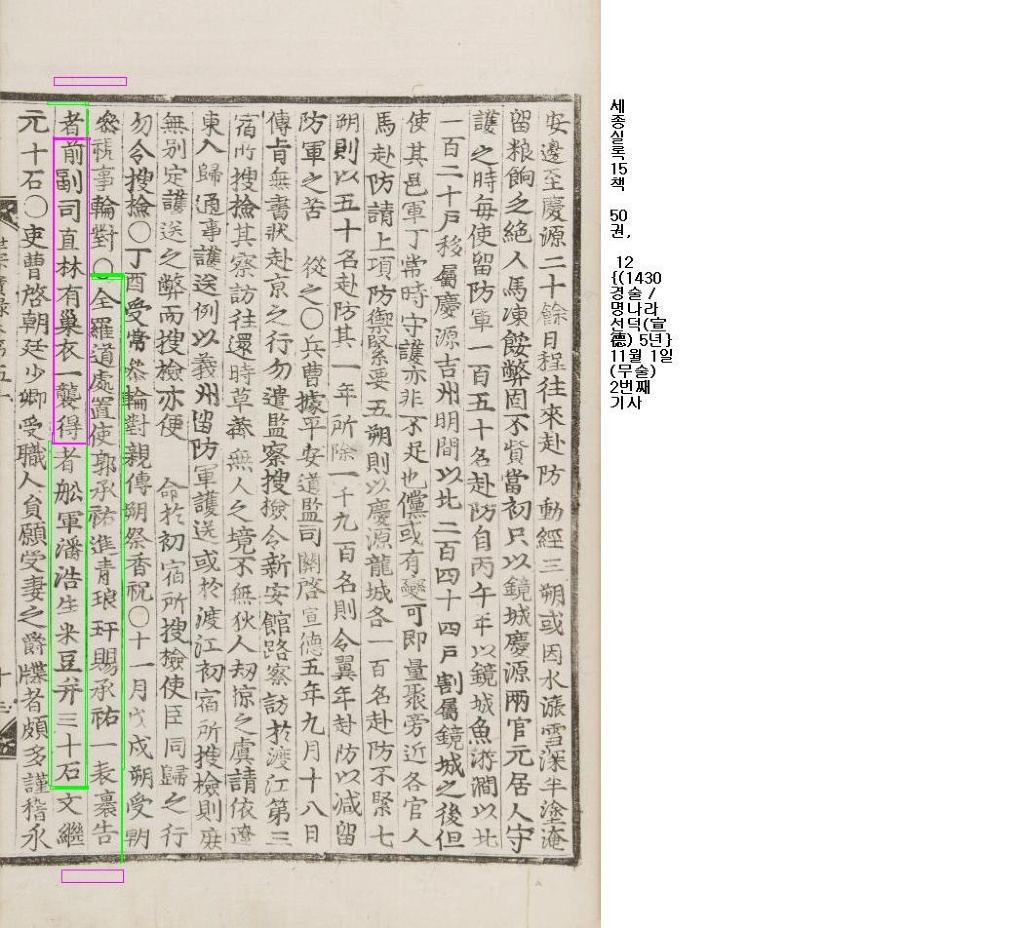 安邊至慶源二十餘日程往來赴防動經三朔或因水漲雪深半塗淹
留粮餉乏絶人馬凍餒弊固不貲當初只以鏡城慶源兩官元居人守
護之時每使留防軍一百五十名赴防自丙午年以鏡城魚游澗以北
一百二十戶移屬慶源吉州明間以北二百四十四戶割屬鏡城之後但
使其邑軍丁常時守護亦非不足也儻或有變可即量聚旁近各官人
馬赴防請上項防禦緊要五朔則以慶源龍城各一百名赴防不緊七
朔則以五十名赴防其一年所除一千九百名則令翼年赴防以減留
防軍之苦 從之〇兵曹據平安道監司關啓宣德五年九月十八日
傳旨無書狀赴京之行勿遣監察搜檢令新安館路察訪於渡江第三
宿所搜檢其察訪往還時草葊無人之境不無伙人刼掠之虞請依遼
東入歸通事護送例以義州留防軍護送或於渡江初宿所搜檢則庶
無別定護送之弊而搜檢亦便 命於初宿所搜檢使臣同歸之行
勿令搜檢〇丁酉受常參輪對親傳朔祭香祝〇十一月戊戌朔受朝
參視事輪對〇全羅道處置使郭承祐進青琅玕賜承祐一表裏告
者前副司直林有巢衣一襲得者船軍潘浩生米豆并三十石文繼
元十石〇吏曹啓朝廷少卿受職人員願受妻之爵牒者頗多謹稽永
세
종
실
록
15
책
50
권,
12
{(1430
경술 /
명나라
선덕(宣
德) 5년}
11월 1일
(무술)
2번째
기사